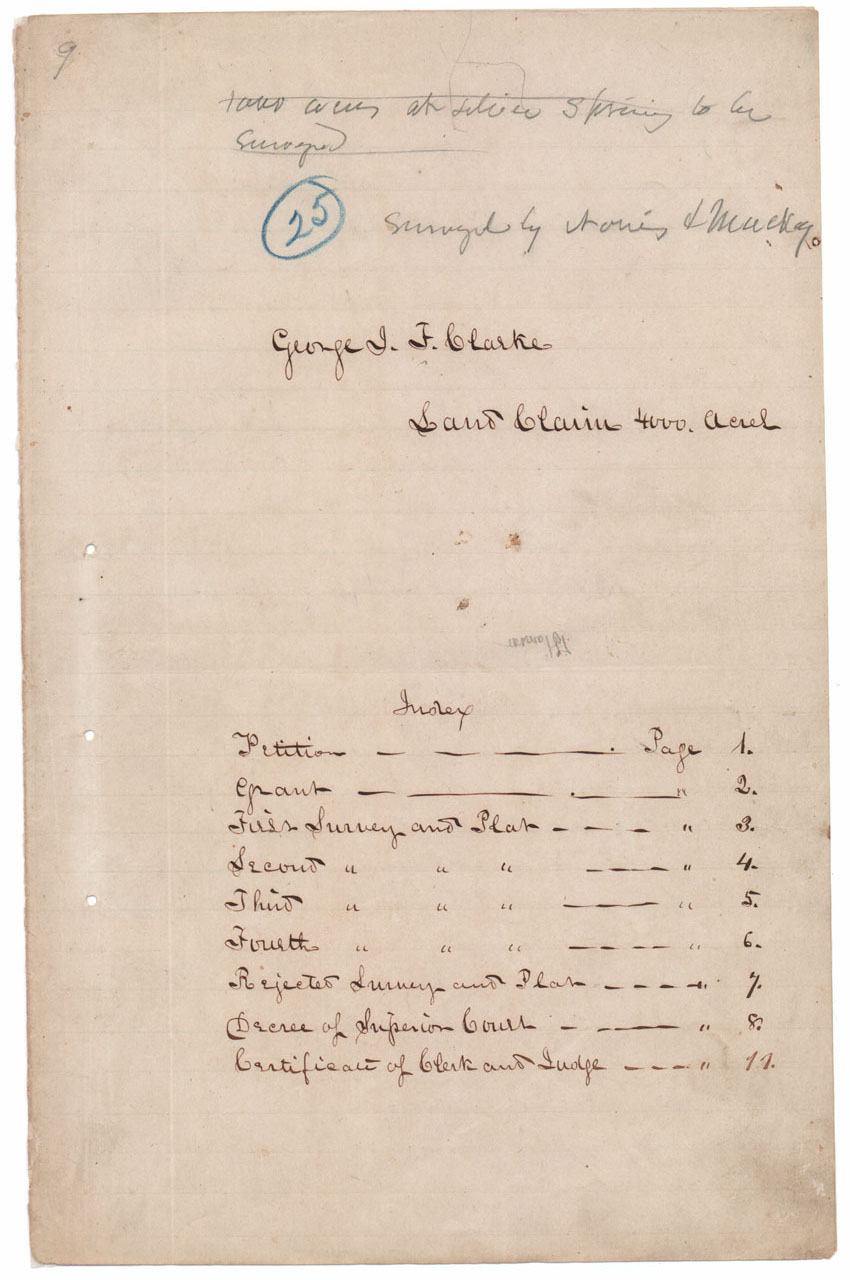 9
acres at silver Spring to be
Surveyed
25 Surveyed by & Mackay
George J. F. Clarke
Land Claim 4000. Acres
Index
Petition — — — . Page 1.
Grant — — . — " 2.
First Survey and Plat - - - " 3.
Second " " " — — - " 4.
Third " " " — — " 5.
Fourth " " " — - - - " 6.
Rejected Survey and Plat - - - - " 7.
Decree of Superior Court - — " 8.
Certificate of Clerk and Judge - - - " 11.